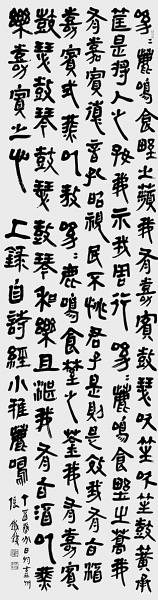 呦呦鹿鳴食野之蘋我有嘉賓鼓瑟吹笙吹笙鼓簧承
筐是將人之好我示我周行呦呦鹿鳴食野之蒿我
有嘉賓德音孔昭視民不恌君子是則是效我有旨酒
嘉賓式燕以敖呦呦鹿鳴食野之芩我有嘉賓
鼓瑟鼓琴鼓瑟鼓琴和樂且湛我有旨酒以燕
樂嘉賓之心 上錄自詩經小雅鹿鳴